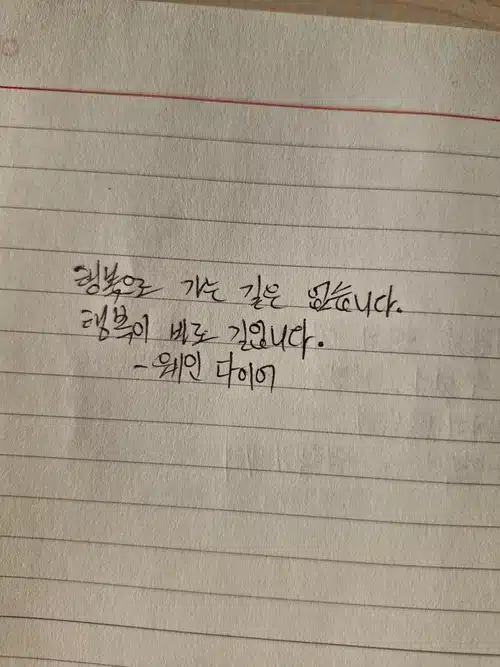 행복으로 가는 길은 없습니다.
행복이 바로 길입니다.
-웨인 다이어